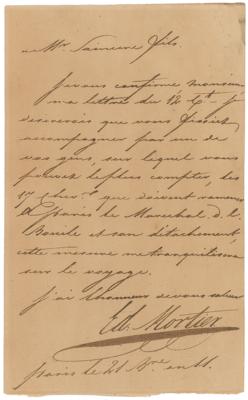 a Mr. fils.
Je vous confirme, monsieur
ma lettre du 12 Ct. Je
desirerois que vous fissiez
accompagner par un de
vos gens, sur lequel vous
pouvez le plus compter, les
17 que doivent ramener
à paris le Marechal d. l.
et son détachement,
cette mesure me tranquilisera
sur le voyage.
J'ai l'honneur de vous saluer
Ed. Mortier
paris le 21 bre an 11.